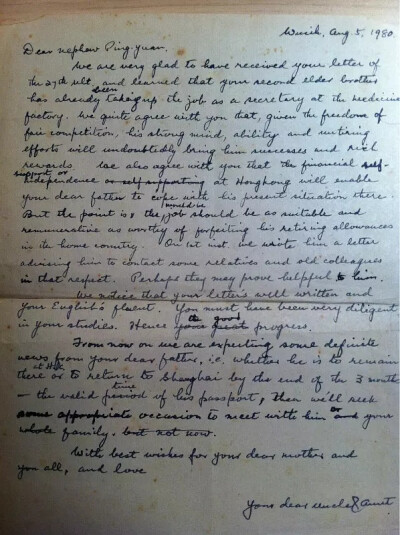 Wusih, Aug. 5, 1980.
Dear nephew Ping-yuan,
We are very glad to have received your letter of
the 27th ult, and learned that your second elder brother
has already been taking up the job as a secretary at the medicine
factory. We quite agree with you that, given the freedom of
fair competition, his strong mind, ability and untiring
efforts will undoubtedly bring him successes and rich
rewards. We also agree with you that the financial self-
support or
independence or self supporting at Hongkong will enable
your dear father to cope with his present situation there.
But the point is, the job should be as suitable and
remunerative as worthy of forfeiting his retiring allowances
in the home country. On 1st inst. we wrote him a letter
advising him to contact some relatives and old colleagues
in that respect. Perhaps they may prove helpful to him.
We notice that your letter's well written and
your English's fluent. You must have been very diligent
in your studies. Hence the good your great progress.
From now on we are expecting some definite
news from your dear father, i.e. whether he is to remain
there at H.K. or to return to Shanghai by the end of the 3 months
— the valid time period of his passport, then we'll seek
some appropriate occasion to meet with him or and your
whole family, but not now.
With best wishes for your dear mother and
you all, and love
Your dear uncle & aunt